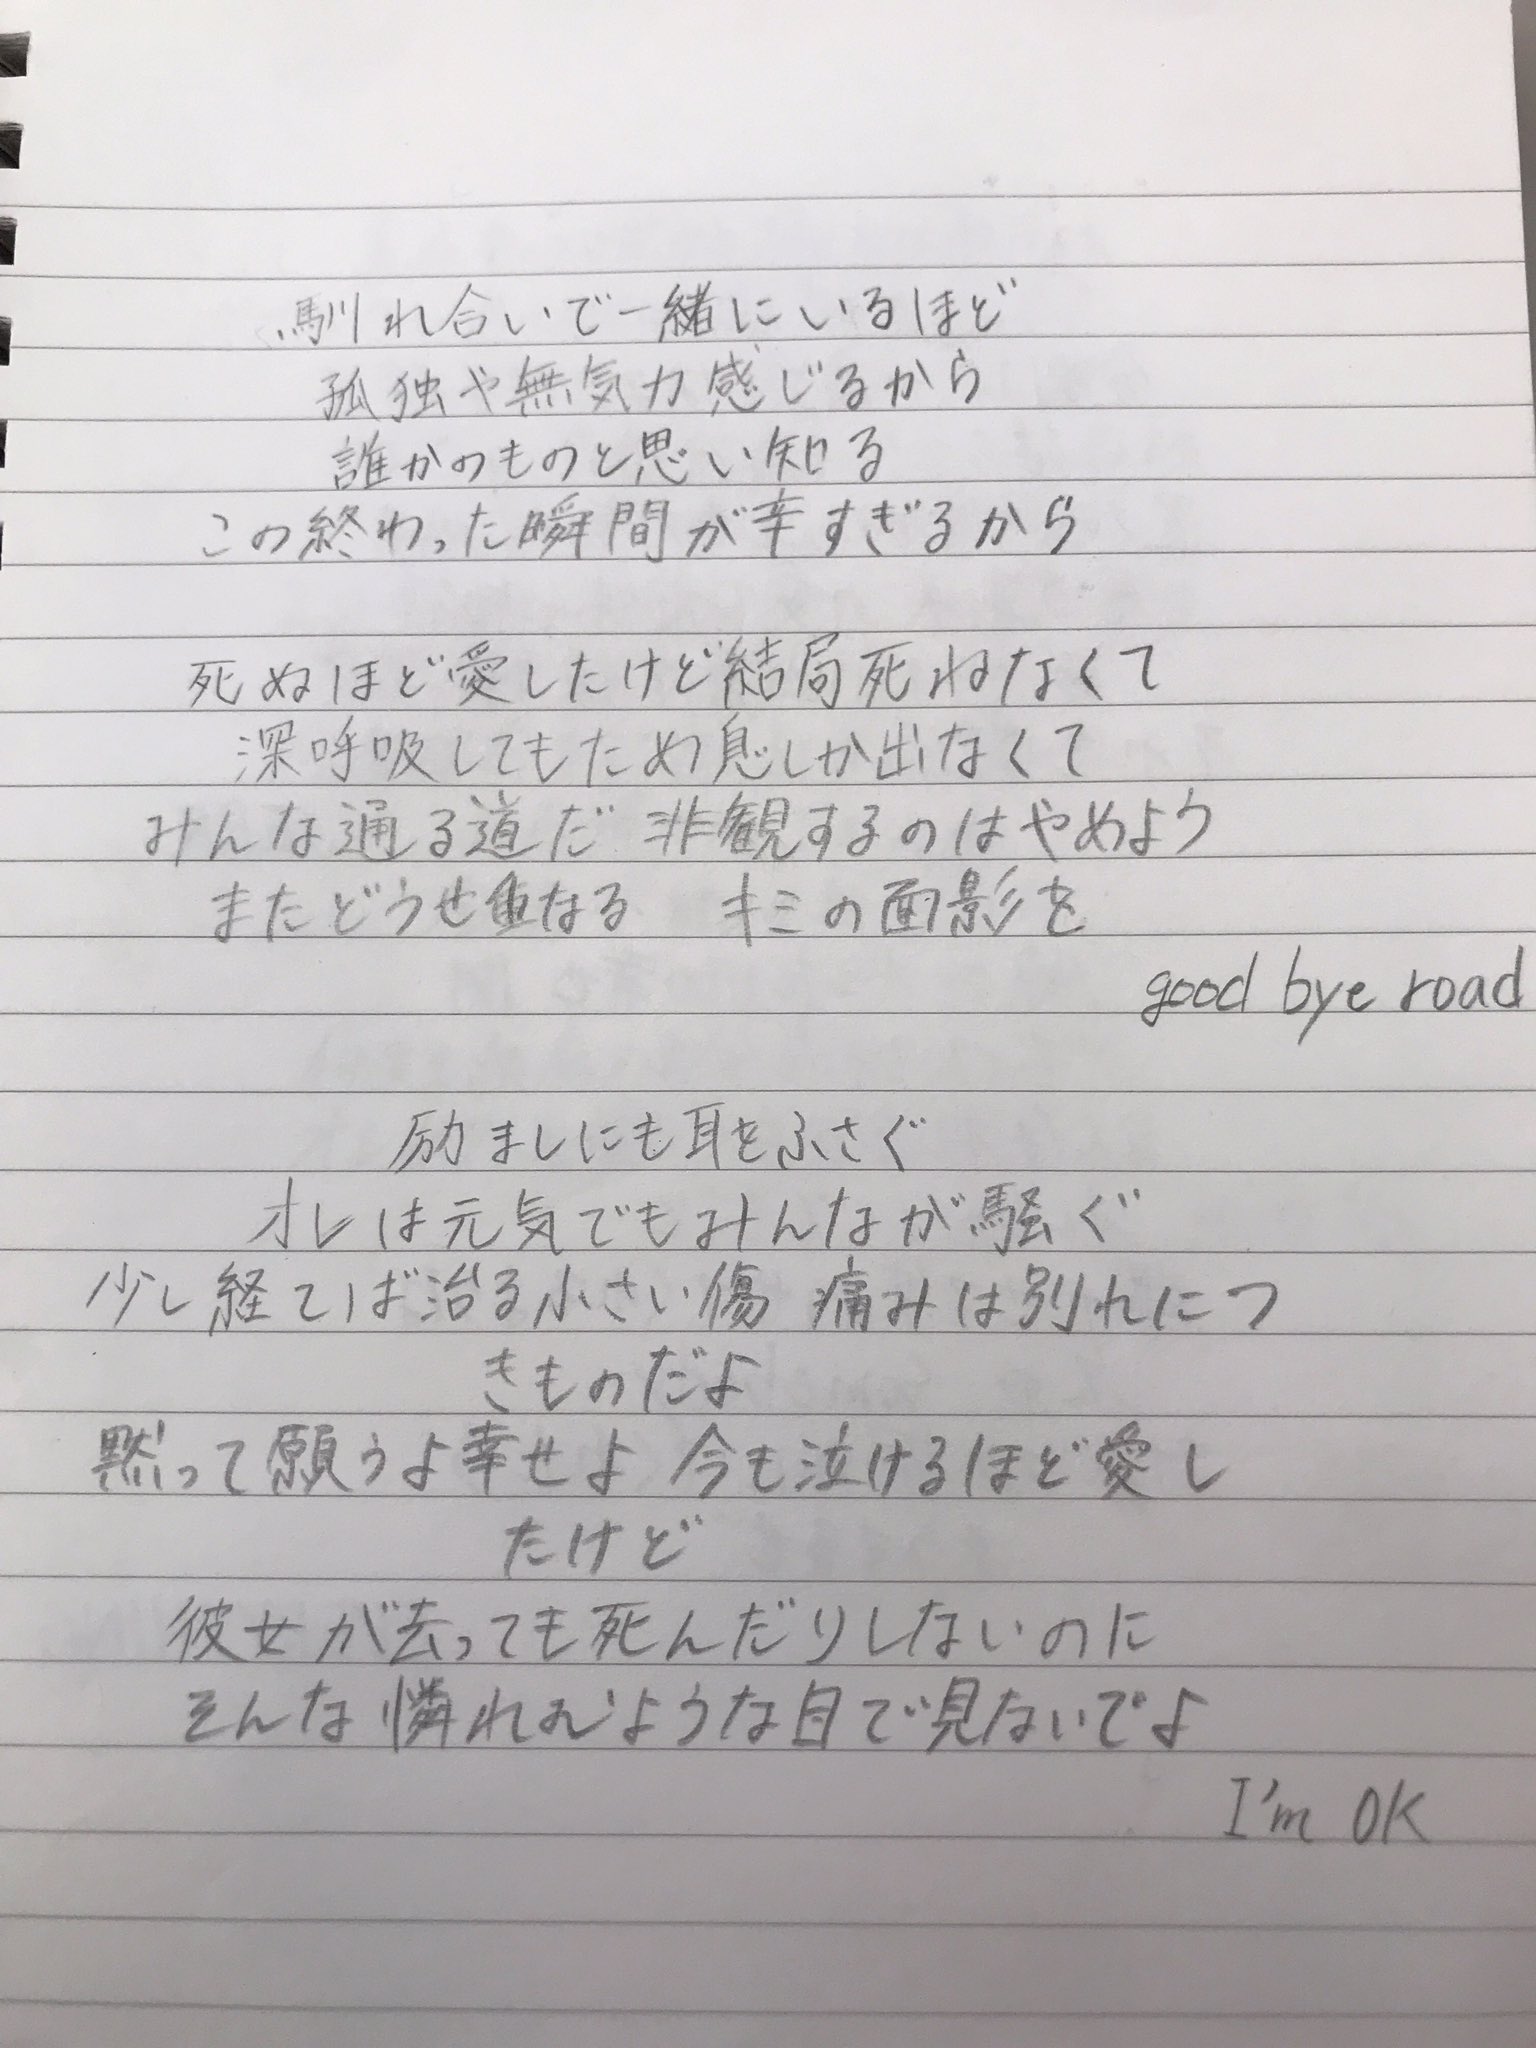 馴れ合いで一緒にいるほど
孤独や無気力感じるから
誰かのものと思い知る
この終わった瞬間が辛すぎるから
死ぬほど愛したけど結局死ねなくて
深呼吸してもため息しか出なくて
みんな通る道だ 非観するのはやめよう
またどうせ重なる キミの面影を
good bye road
励ましにも耳をふさぐ
オレは元気でもみんなが騒ぐ
少し経てば治る小さい傷 痛みは別れにつ
きものだよ
黙って願うよ幸せよ 今も泣けるほど愛し
たけど
彼女が去っても死んだりしないのに
そんな憐れむような目で見ないでよ
I'm OK